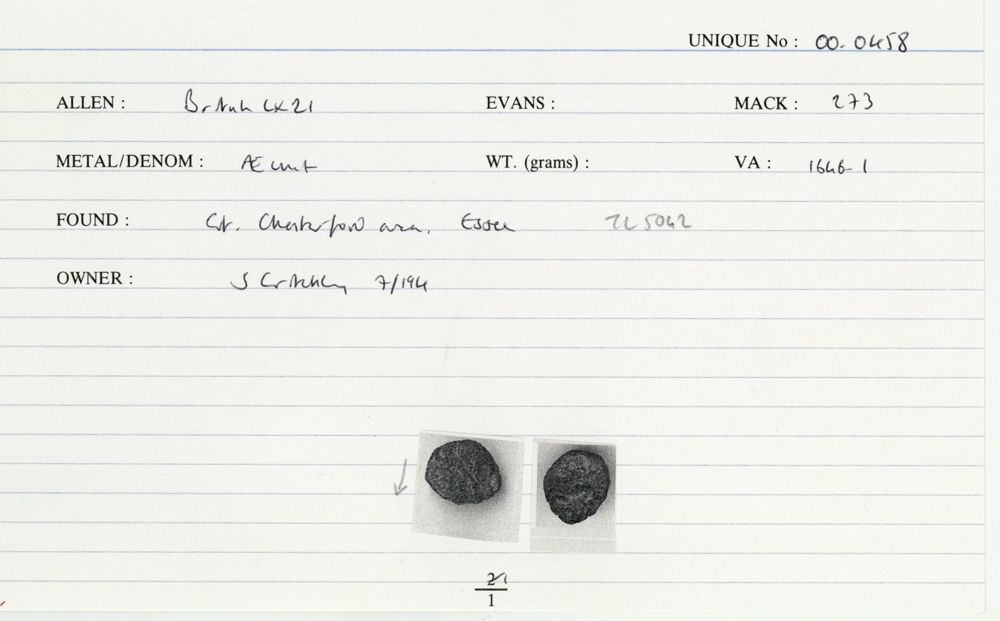 UNIQUE No : 00.0458
ALLEN : British LX21 EVANS : MACK : 273
METAL/DENOM : Æ unit WT. (grams) : VA : 1646-1
FOUND : Gt. Chesterford area, Essex TL 5042
OWNER : S Critchley 7/194
21
1